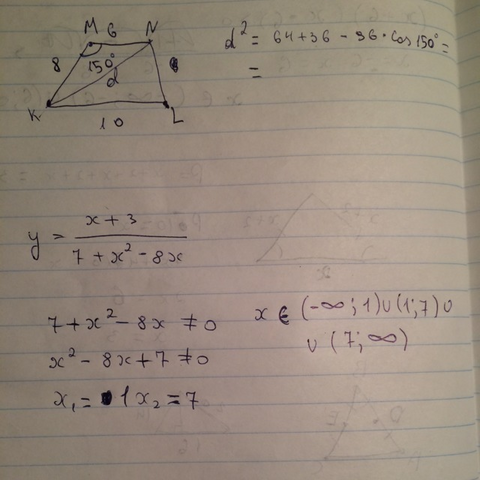 M 6 N
8 150° d 6
K L
10
d² = 64 + 36 - 96 · cos 150° =
=
y = (x + 3) / (7 + x² - 8x)
7 + x² - 8x ≠ 0
x² - 8x + 7 ≠ 0
x₁ = 1 x₂ = 7
x ∈ (-∞; 1) ∪ (1; 7) ∪
∪ (7; ∞)